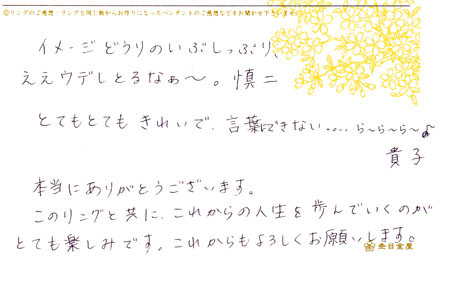 ◎リングのご感想・リングと同じ板からお作りになったペンダントのご感想などをお聞かせ下さいませ。
イメージどうりのいぶしっぷり、
ええウデしとるなぁ〜。慎二
とてもとても きれいで、言葉にできない.... ら〜ら〜ら〜♪
貴子
本当にありがとうございます。
このリングと共に、これからの人生を歩んでいくのが
とても楽しみです。これからもよろしくお願いします。
杢目金屋